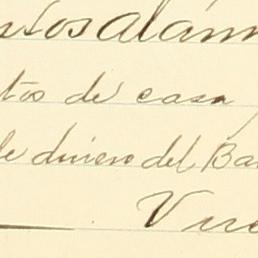 ntos alám
tos de casa
de dinero del Ba
V